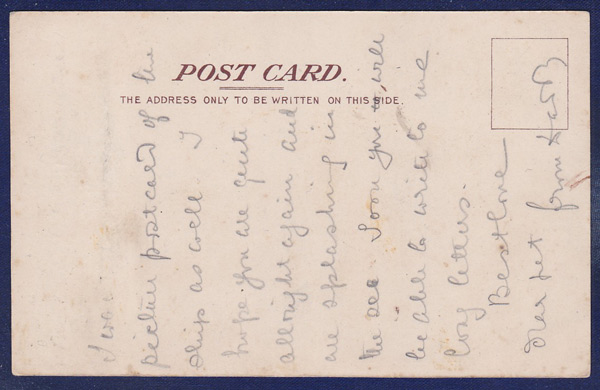 POST CARD.
THE ADDRESS ONLY TO BE WRITTEN ON THIS SIDE.
I
picture postcard of the
ship as well. I
hope you are quite
allright again and
are splashing in
the sea. Soon you will
be able to write to me
long letters.
Best love
from